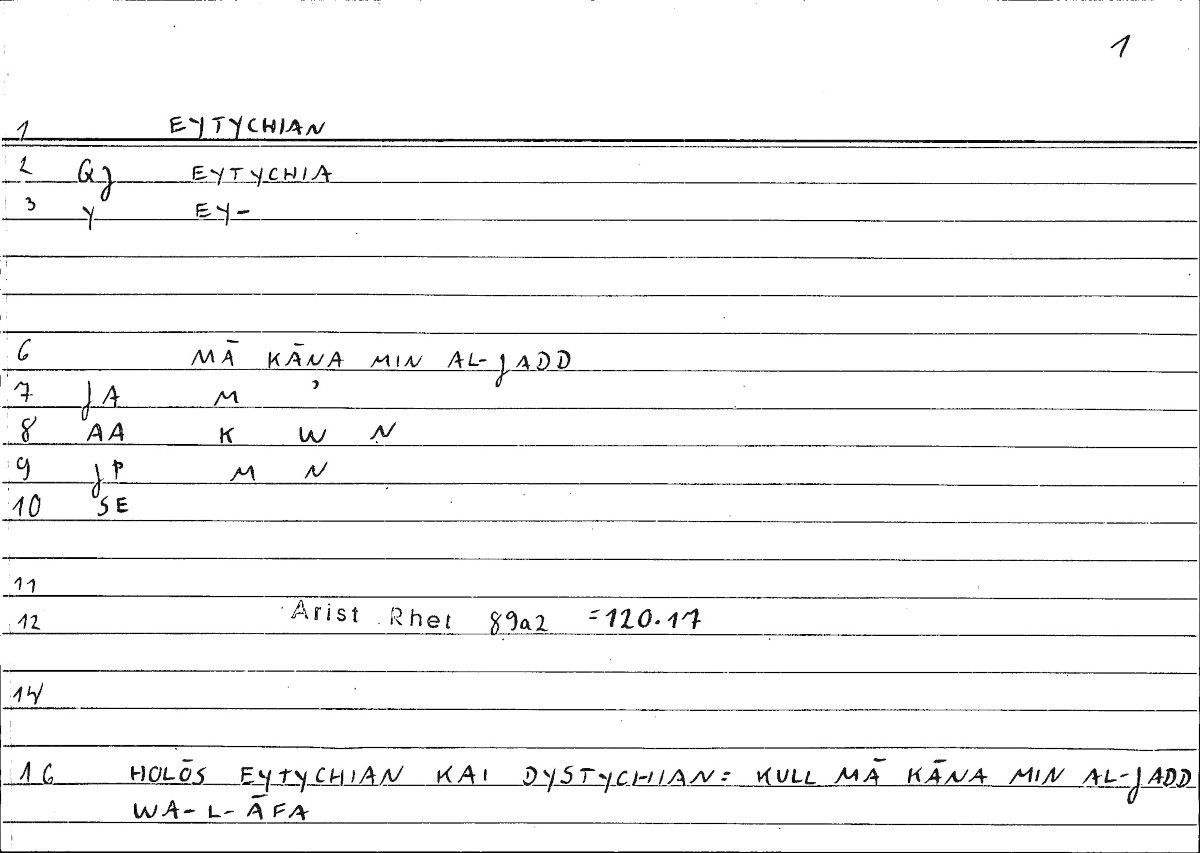 1
1 EYTYCHIAN
2 QJ EYTYCHIA
3 Y EY-
6 MĀ KĀNA MIN AL-JADD
7 JA M ʾ
8 AA K W N
9 JP M N
10 SE
11
12 Arist Rhet 89a2 =120.17
14
16 HOLŌS EYTYCHIAN KAI DYSTYCHIAN= KULL MĀ KĀNA MIN AL-JADD
WA-L-ĀFA